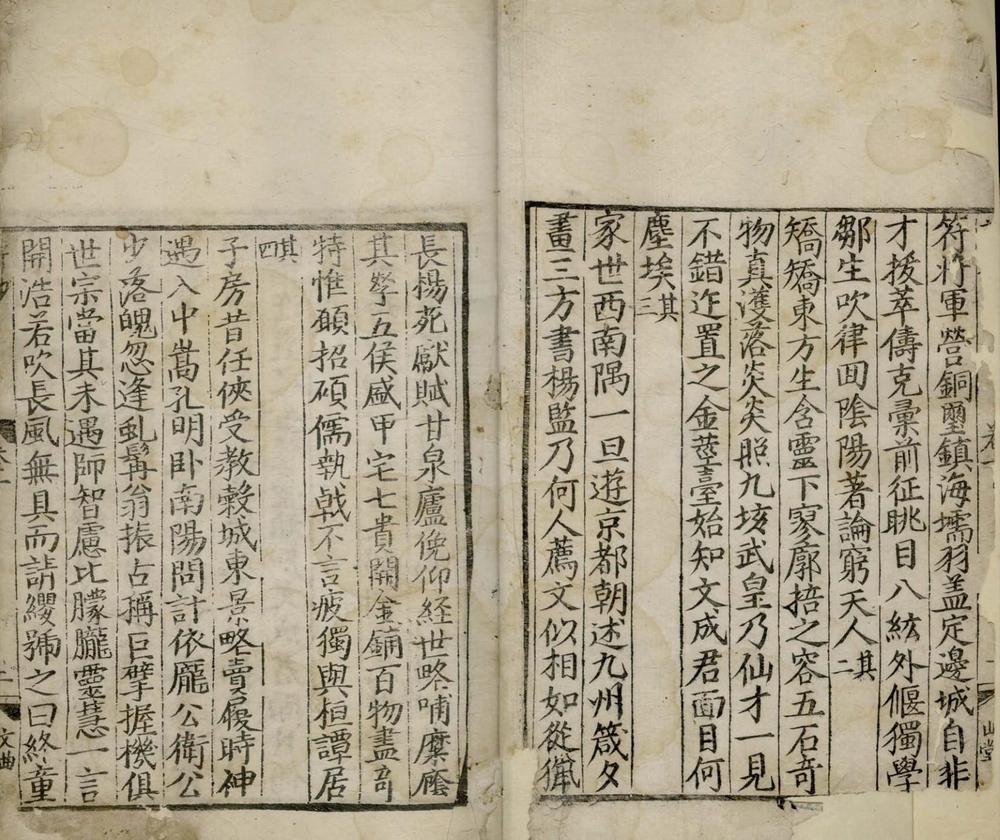 符將軍營銅璽鎮海壖羽盖定邊城自非
才援萃儔克彙前征眺目八紘外偃獨學
鄒生吹律回陰陽著論窮天人其二
矯矯東方生含靈下寥廓掊之容五石奇
物真濩落炎炎照九垓武皇乃仙才一見
不錯迕置之金莖臺始知文成君面目何
塵埃其三
家世西南隅一旦遊京都朝述九州箴夕
畫三方書楊監乃何人薦文似相如從獵
長楊苑獻賦甘泉廬俛仰経世略哺糜餍
其學五侯盛甲宅七貴開金鋪百物盡奇
特惟願招碩儒執戟不言疲獨與桓譚居
其四
子房昔任俠受教榖城東景略賣履時神
遇入中嵩孔明卧南陽問計依龐公衛公
少落魄忽逢虬髯翁振古稱巨擘握機俱
世宗當其未遇師智慮比朦朧靈慧一言
開浩若吹長風無具而請纓號之曰終童